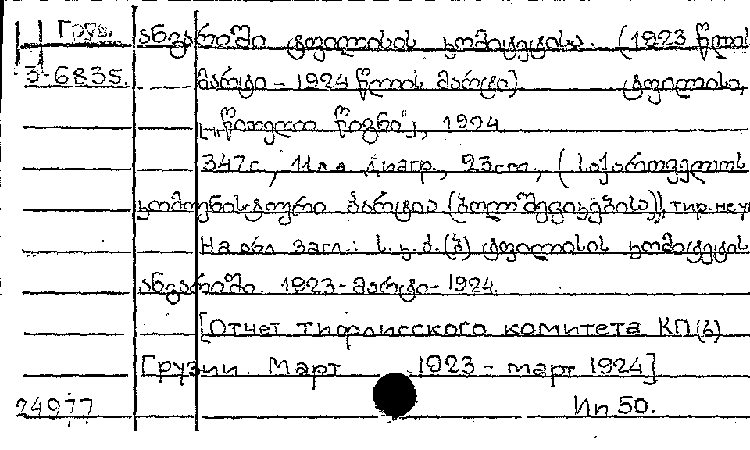 Груз. ანგარიში ტფილისის კომიტეტისა. (1923 წლის
3-6835. მარტი - 1924 წლის მარტი). ტფილისი,
[„წითელი წიგნი"], 1924
347с., 11 л.л диагр., 23см, (საქართველოს
კომუნისტური პარტია (ბოლშევიკებისა)), тир. не ук
На обл загл.: ს.კ.პ.(ბ) ტფილისის კომიტეტის
ანგარიში 1923 - მარტი - 1924.
[Отчет тифлисского комитета КП(б)
Грузии. Март 1923 - март 1924]
24977 Ип 50.